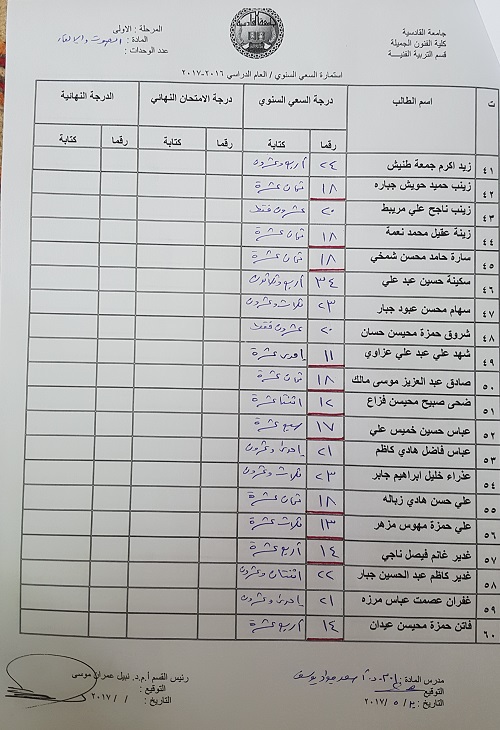 جامعة القادسية
كلية الفنون الجميلة
قسم التربية الفنيـــة
المرحلة : الاولى
المادة : الصوت والالقاء
عدد الوحدات :
استمارة السعي السنوي / العام الدراسي ٢٠١٦-٢٠١٧
ت اسم الطالب درجة السعي السنوي درجة الامتحان النهائي الدرجة النهائية
رقما كتابة رقما كتابة رقما كتابة
٤١ زيد اكرم جمعة طنيش ٢٤ أربع وعشرون
٤٢ زينب حميد حويش جباره ١٨ ثمان عشرة
٤٣ زينب ناجح علي مريبط ٢٠ عشرون فقط
٤٤ زينة عقيل محمد نعمة ١٨ ثمان عشرة
٤٥ سارة حامد محسن شمخي ١٨ ثمان عشرة
٤٦ سكينة حسين عبد علي ٣٤ أربع وثلاثون
٤٧ سهام محسن عبود جبار ٢٣ ثلاث وعشرون
٤٨ شروق حمزة محيسن حسان ٢٠ عشرون فقط
٤٩ شهد علي عبد علي عزاوي ١١ احدى عشرة
٥٠ صادق عبد العزيز موسى مالك ١٨ ثمان عشرة
٥١ ضحى صبيح محيسن فزاع ١٢ اثنتا عشرة
٥٢ عباس حسين خميس علي ١٧ سبع عشرة
٥٣ عباس فاضل هادي كاظم ٢١ احدى وعشرون
٥٤ عذراء خليل ابراهيم جابر ٢٣ ثلاث وعشرون
٥٥ علي حسن هادي زباله ١٨ ثمان عشرة
٥٦ علي حمزة مهوس مزهر ١٣ ثلاث عشرة
٥٧ غدير غانم فيصل ناجي ١٤ أربع عشرة
٥٨ غدير كاظم عبد الحسين جبار ٢٢ اثنتان وعشرون
٥٩ غفران عصمت عباس مرزه ٢١ احدى وعشرون
٦٠ فاتن حمزة محيسن عيدان ١٤ أربع عشرة
مدرس المادة : يوسف
التوقيع
التاريخ : / ٥ / ٢٠١٧
رئيس القسم أ.م.د. نبيل عمران موسى
التوقيع :
التاريخ : / / ٢٠١٧